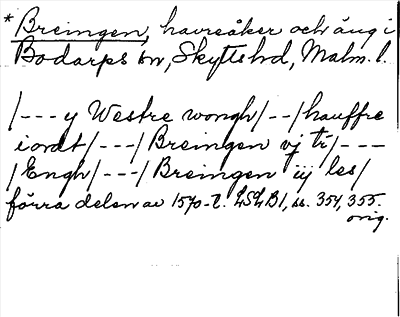 * Breingen, havreåker och äng i
Bodarps sn, Skytts hd, Malm. l.
/---y Westre wongh/--/hauffre
iordt/---/Breingen vj ti/---
/Engh/---/Breingen iij les/
förra delen av 1570-t. LSLB1, ss. 354, 355.
orig.